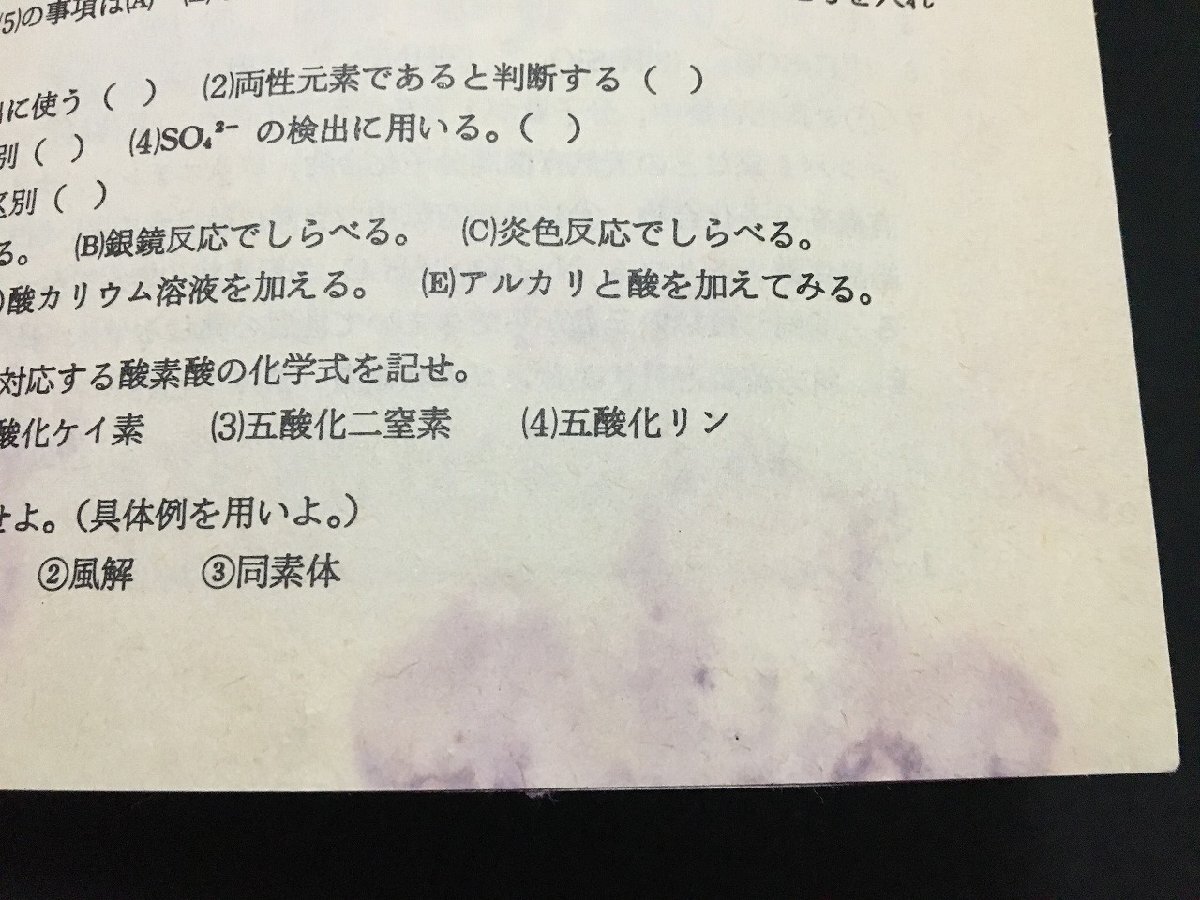 (5)の事項は(A)
に使う（　）　(2)両性元素であると判断する（　）
別（　）　(4)SO₄²⁻ の検出に用いる。（　）
区別（　）
る。　(B)銀鏡反応でしらべる。　(C)炎色反応でしらべる。
酸カリウム溶液を加える。　(E)アルカリと酸を加えてみる。
対応する酸素酸の化学式を記せ。
酸化ケイ素　(3)五酸化二窒素　(4)五酸化リン
せよ。（具体例を用いよ。）
②風解　③同素体